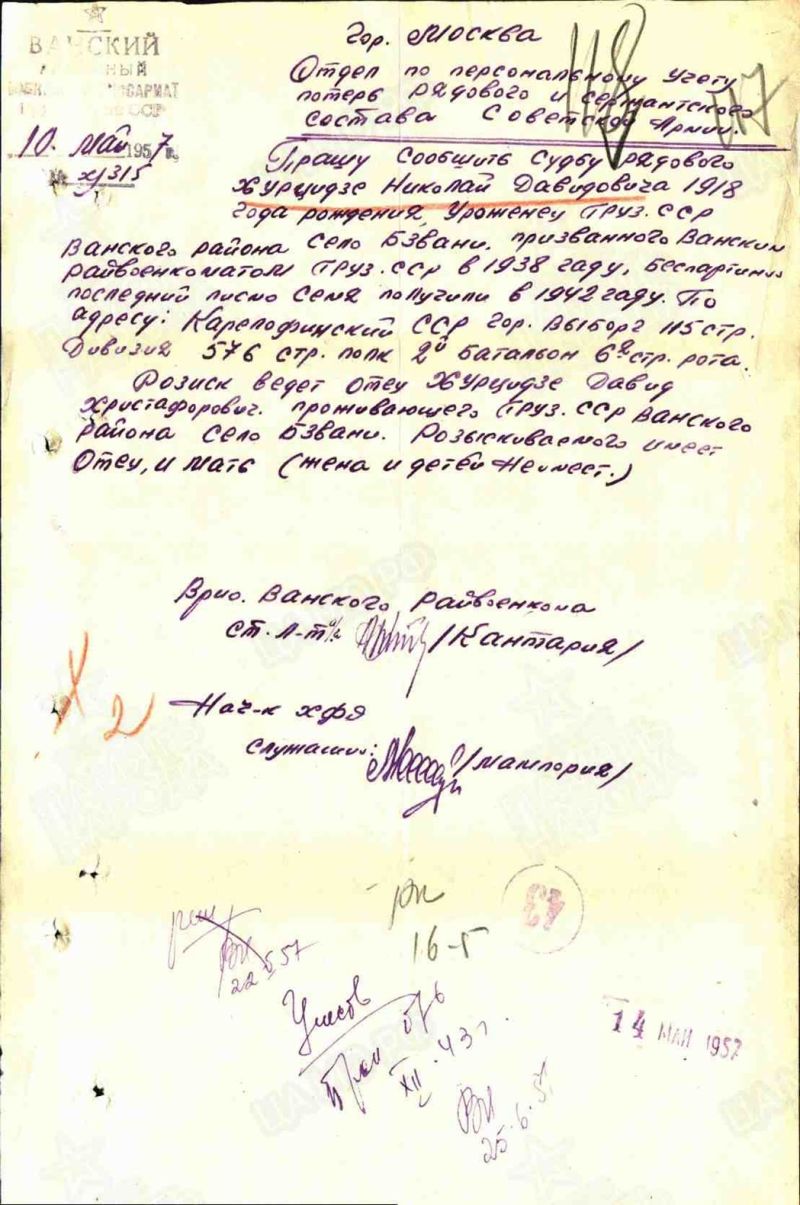 ВАНСКИЙ
Гор. Москва
Отдел по персональному учету
потерь рядового и сержантского
состава Советской Армии.
10. Май 1957 г.
№ х/315
Прашу сообшить судбу рядового
Журцидзе Николай Давидовича 1918
года рождения, Уроженец Груз. ССР
Ванского района село Бзвани. призванного Ванским
райвоенкоматом Груз. ССР в 1938 году, беспартиний
последний писмо семя получили в 1942 году. По
адресу: Карелофинский ССР гор. Выборг 115 стр.
Дивизия 576 стр. полк 2й баталъон 6я стр. рота.
Розиск ведет отец Журцидзе Давид
Христафорович. проживающего Груз. ССР Ванского
района село Бзвани. Розыскиваемого имеет
Отец, и мать (жена и детей неимеет.)
Врио. Ванского райвоенкома
ст. л-т (Кантария)
Х 2
Нач-к ХФЯ
служаший: (мампория)
43
16-5
22.5.57
576
XII 43 г.
14 МАЙ 1957
25.6.57